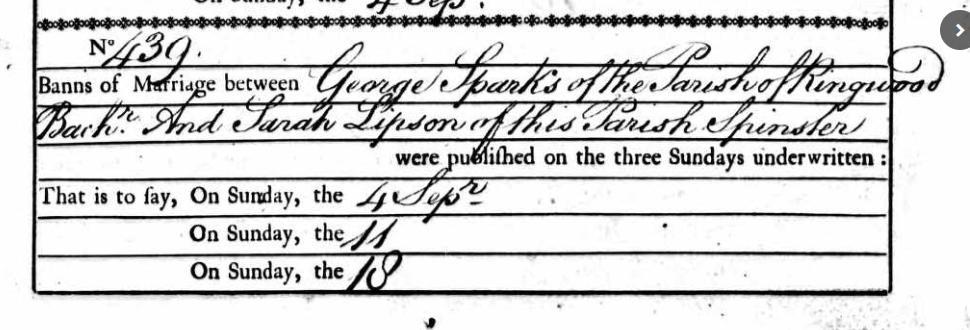 On Sunday, the 4 Sepr.
No 439.
Banns of Marriage between George Sparks of the Parish of Ringwood
Bachr. And Sarah Lipson of this Parish Spinster
were publiſhed on the three Sundays underwritten :
That is to ſay, On Sunday, the 4 Sepr
On Sunday, the 11
On Sunday, the 18